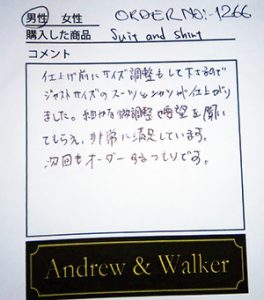 男性 女性 ORDER NO:-1266
購入した商品 Suit and shirt
コメント
仕上げ前にサイズ調整もして下さるので
ジャストサイズのスーツとシャツが仕上がり
ました。細やかな微調整や要望を聞いて
もらえ、非常に満足しています。
次回もオーダーするつもりです。
Andrew & Walker